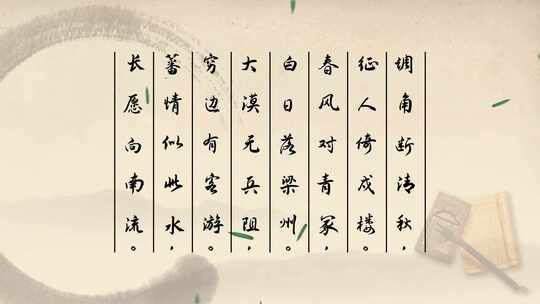 调角断清秋，
征人倚戍楼。
春风对青冢，
白日落梁州。
大漠无兵阻，
穷边有客游。
蕃情似此水，
长愿向南流。